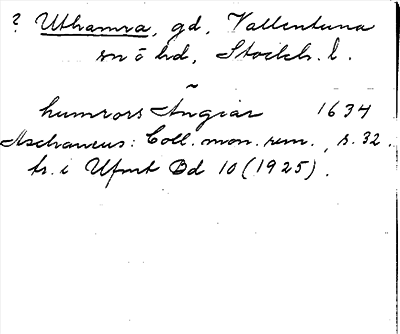 ? Uthamra, gd, Vallentuna
sn o hd, Stockh. l.
~
humrors Ängiar 1634
Aschaneus: Coll. mon. rem., s. 32.
tr. i Ufmt Bd 10 (1925).